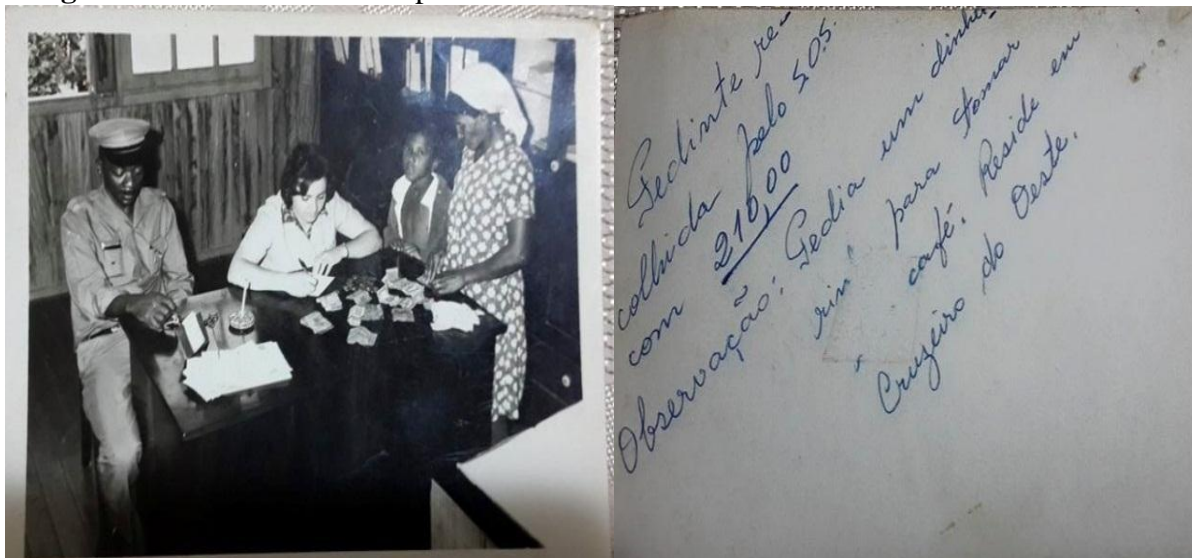 Pedinte re-
colhida pelo S.O.S
com 210,00
Observação: Pedia um dinhei-
rin' para tomar
café. Reside em
Cruzeiro do Oeste.